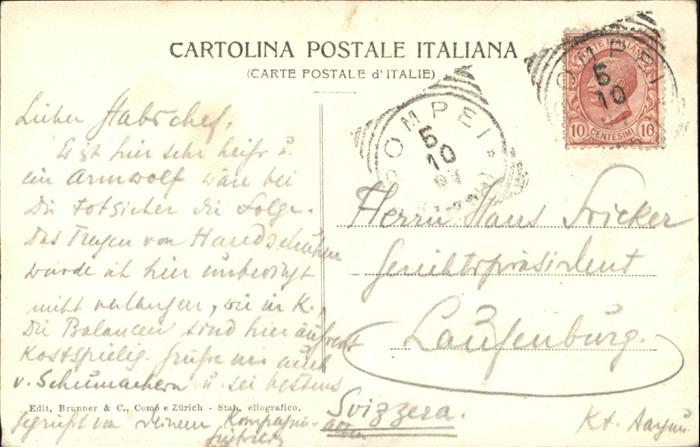 CARTOLINA POSTALE ITALIANA
(CARTE POSTALE d'ITALIE)
POSTE ITALIANE
10 CENTESIMI 10
POMPEI
5
10
POMPEI
5
10
Lieber Stabschef,
Es ist hier sehr heiss u.
ein Armwolf wäre bei
Dir totsicher die Folge.
Das Tragen von Handschuhen
würde ich hier unbedingt
nicht verlangen, wie in K.,
Die Balancen sind hier äusserst
kostspielig. Grüsse mir auch
v. Schumachern u. sei bestens
gegrüsst von Deinem
Herrn Hans Fricker
Gerichtspräsident
Laufenburg.
Svizzera.
Kt. Aargau
Edit. Brunner & C., Como e Zürich - Stab. eliografico.